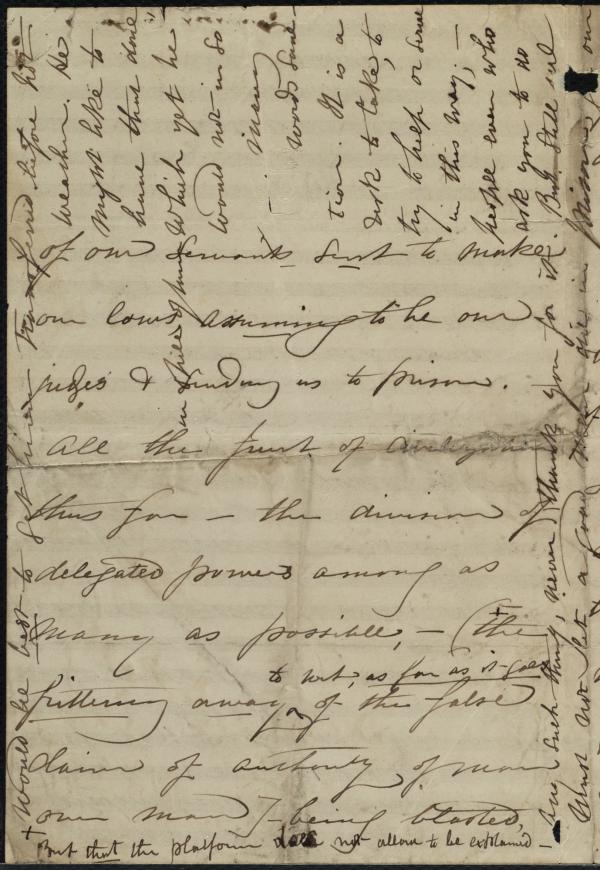 of our servants sent to make
our laws, assuming to be our
judges & sending us to prison.
All the fruit of
thus far — the division of
delegated powers among as
many as possible, — (the
to wit, as far as it goes
frittering away of the false
claim of authority, of man
over man) — being blasted,
But that the platform does not allow to be explained —
weather. He
might like to
have this done
which yet he
would not in so
many
words
tion. It is a
risk to take, to
try to help or serve
in this way; —
people even who
ask you to do
But still
any such thing, never thank you for it.
Must not let a good man die in prison,
+ Would be best to get him transferred before hot
in spite of